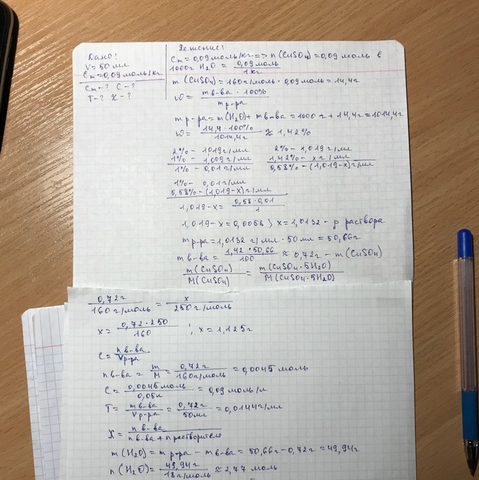 Дано:
V=50 мл
Cm=0,09 моль/кг
Cm-? C-?
T-? X-?
Решение:
Cm=0,09 моль/кг => n(CuSO4)=0,09 моль в
1000г H2O = 0,09 моль / 1 кг
m(CuSO4)=160 г/моль · 0,09 моль = 14,4г
ω = m в-ва · 100% / m р-ра
m р-ра = m(H2O) + m в-ва = 1000г + 14,4г = 1014,4г
ω = 14,4 · 100% / 1014,4г ≈ 1,42%
2% - 1,019 г/мл
1% - 1,009 г/мл
1% - 0,01 г/мл
2% - 1,019 г/мл
1,42% - x г/мл
0,58% - (1,019-x) г/мл
1% - 0,01 г/мл
0,58% - (1,019-x) г/мл
1,019-x = 0,58 · 0,01 / 1
1,019-x = 0,0058; x = 1,0132 - ρ раствора
m р-ра = 1,0132 г/мл · 50 мл = 50,66г
m в-ва = 1,42 · 50,66 / 100 ≈ 0,72г - m(CuSO4)
m(CuSO4) / M(CuSO4) = m(CuSO4·5H2O) / M(CuSO4·5H2O)
0,72г / 160 г/моль = x / 250 г/моль
x = 0,72 · 250 / 160 ; x = 1,125г
C = n в-ва / V р-ра
n в-ва = m / M = 0,72г / 160 г/моль = 0,0045 моль
C = 0,0045 моль / 0,05л = 0,09 моль/л
T = m в-ва / V р-ра = 0,72г / 50 мл = 0,0144 г/мл
X = n в-ва / n в-ва + n растворителя
m(H2O) = m р-ра - m в-ва = 50,66г - 0,72г = 49,94г
n(H2O) = 49,94г / 18 г/моль ≈ 2,77 моль